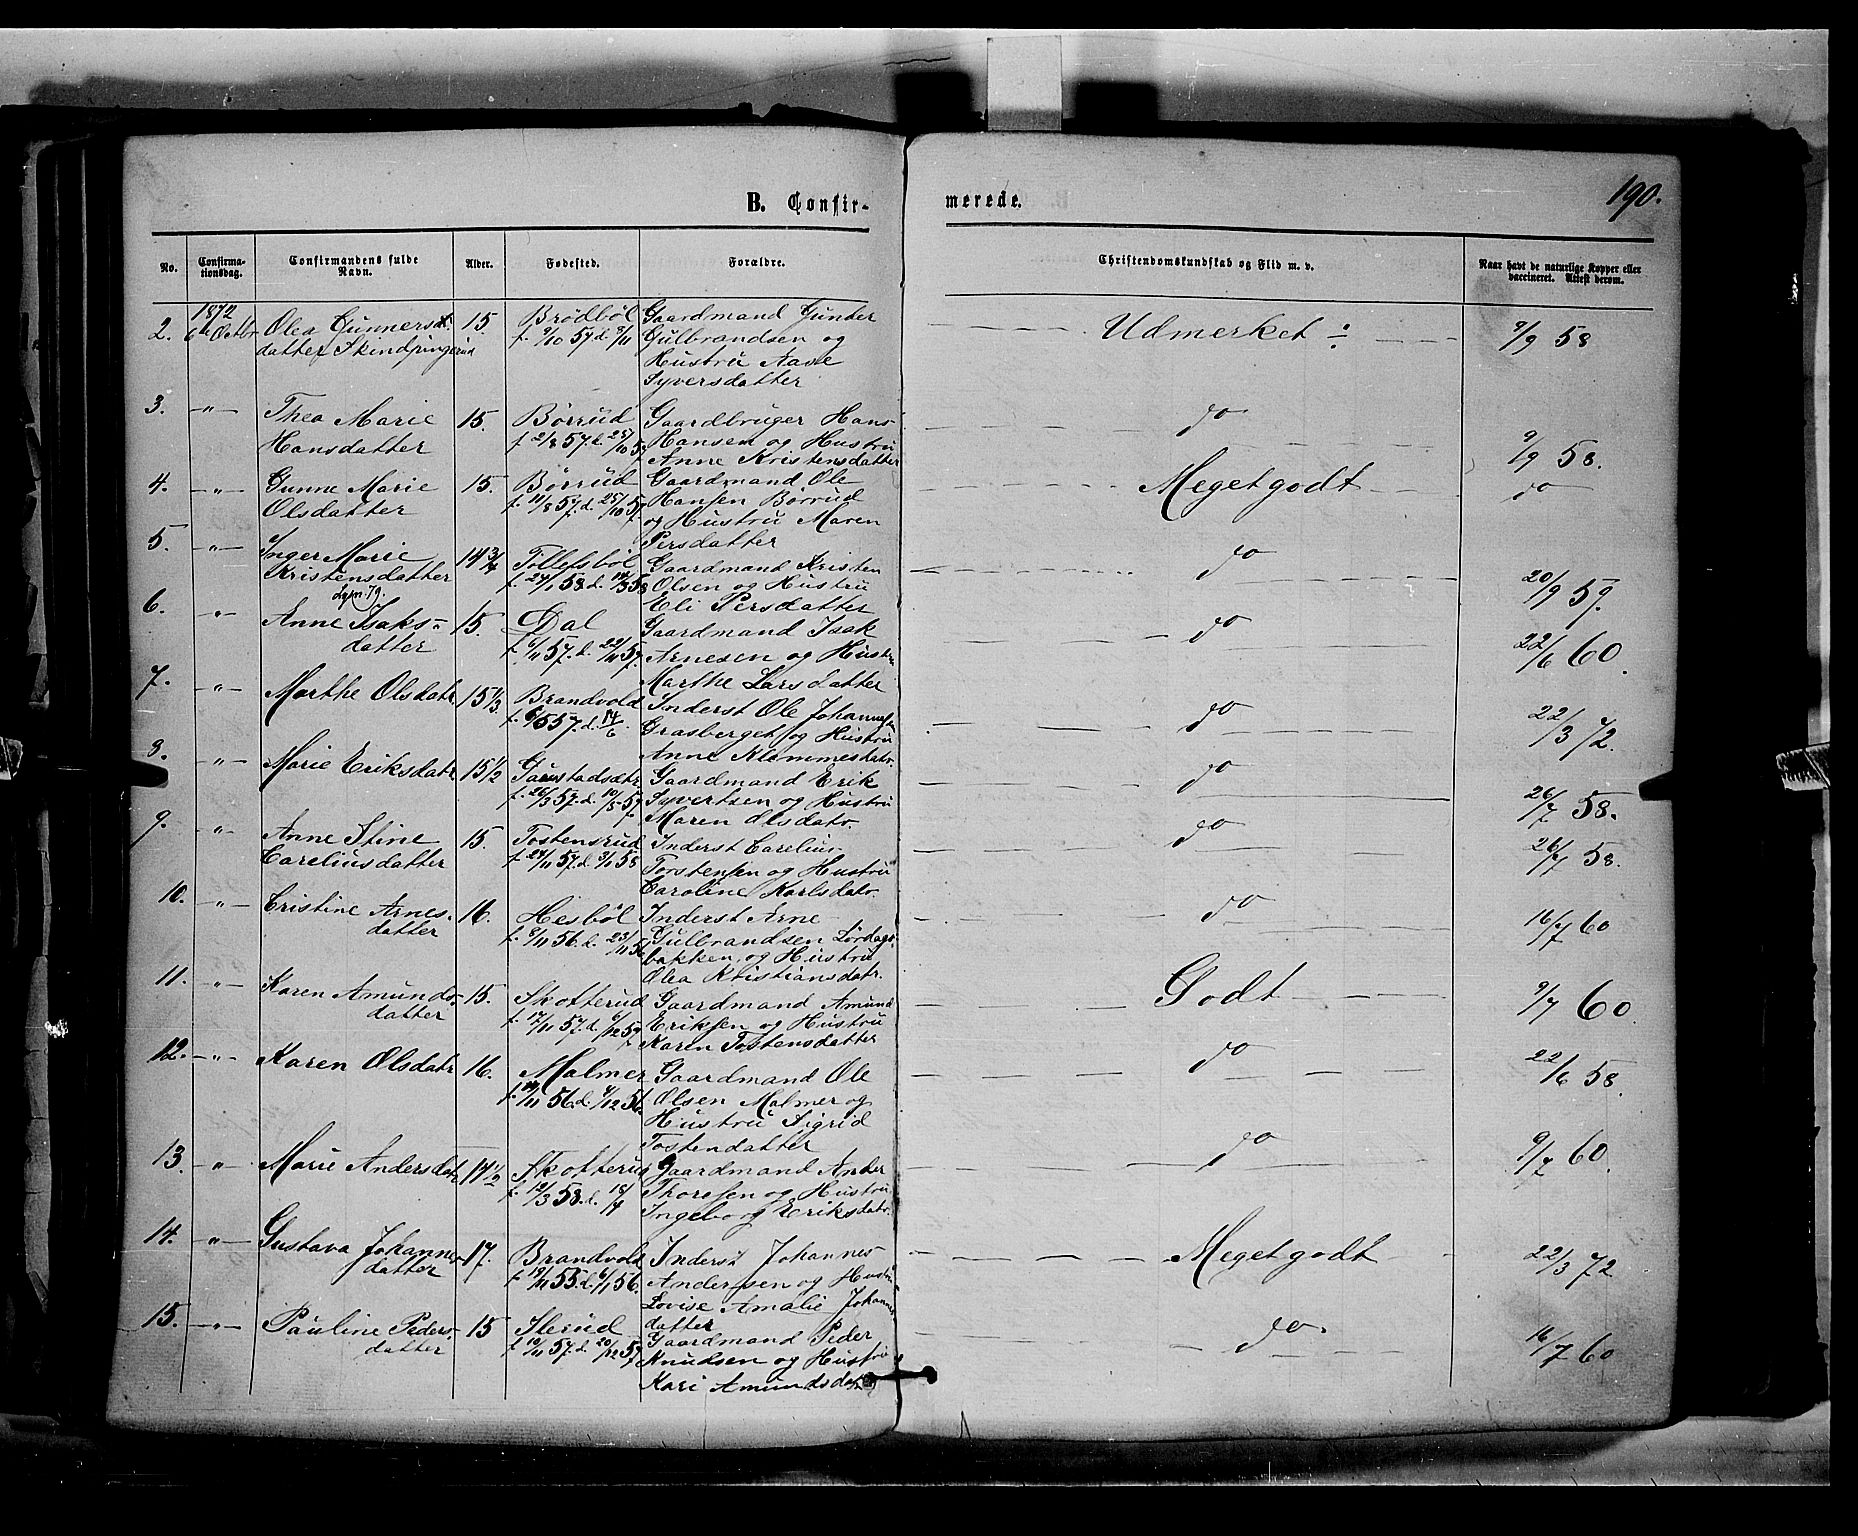 190.
B. Confir- merede.
No. Confirma-tionsdag. Confirmandens fulde Navn. Alder. Fødested. Forældre. Christendomskundskab og Flid m. v. Naar havt de naturlige Kopper eller vaccineret. Attest derom.
1872
2. 6te Octbr Olea Gunners- 15. Brödböl Gaardmand Gunder Udmerket 9/9 58
datter Skindpungerud f. 9/10 57 d. 8/11 Gulbrandsen og
Hustru Aase
Syversdatter
3. -"- Thea Marie 15. Börrud Gaardbruger Hans do 9/9 58.
Hansdatter f. 2/8 57. d. 25/10 57 Hansen og Hustru
Anne Kristensdatter
4. -"- Gunne Marie 15. Börrud Gaardmand Ole Megetgodt do
Olsdatter f. 11/8 57. d. 25/10 57 Hansen Börrud
og Hustru Maren
Persdatter
5. -"- Inger Marie 14 3/4 Tollefsböl Gaardmand Kristen do 20/9 59.
Kristensdatter f. 24/1 58 d. 14/3 58 Olsen og Hustru
Eli Persdatter
6. " Anne Isaks- 15. Dal Gaardmand Isak do 22/6 60.
datter f. 6/11 57. d. 22/11 57. Arnesen og Hustru
Marthe Larsdatter
7. -"- Marthe Olsdatr 15 1/3 Brandvold Inderst Ole Johannesen do 22/3 72.
f. 6/5 57. d. 14/6 Grasberget og Hustru
Anne Klemmesdatr.
8. -"- Marie Eriksdatr 15 1/2 Gaustadsætr Gaardmand Erik do 26/7 58.
f. 26/3 57. d. 10/5 57. Syvertsen og Hustru
Maren Olsdatr.
9. -"- Anne Stine 15. Tostensrud Inderst Carelius do 26/7 58.
Careliusdatter f. 24/11 57. d. 3/1 58 Torstensen og Hustru
Caroline Karlsdatr.
10. -"- Cristine Arnes- 16. Hesböl Inderst Arne do 16/7 60
datter f. 8/11 56. d. 23/11 56 Gulbrandsen Lördags-
bakken, og Hustru
Olea Kristiansdatr.
11. -"- Karen Amunds- 15. Skotterud Gaardmand Amund Godt 9/7 60.
datter f. 17/11 57. d. 6/12 57. Eriksen og Hustru
Karen Tostensdatter
12. -"- Karen Olsdatr 16. Malmer Gaardmand Ole do 22/6 58
56. d. 56. Olsen Malmer og
Hustru Sigrid
Tostendatter
13. -"- Marie Andersdatr 14 1/2 Skotterud Gaardmand Ander do 9/7 60.
f. 12/3 58. d. 18/4 Thoresen og Hustru
Ingeborg Eriksdatr.
14. -"- Gustava Johannes- 17. Brandvold Inderst Johannes Megetgodt 22/3 72
datter f. 19/11 55. d. 6/1 56. Andersen og Hustru
Lovise Amalie Johannes-
datter
15. -"- Pauline Peders- 15 Slerud Gaardmand Peder do. 16/7 60
datter f. 10/11 57. d. 20/12 57 Knudsen og Hustru
Kari Amundsdatr